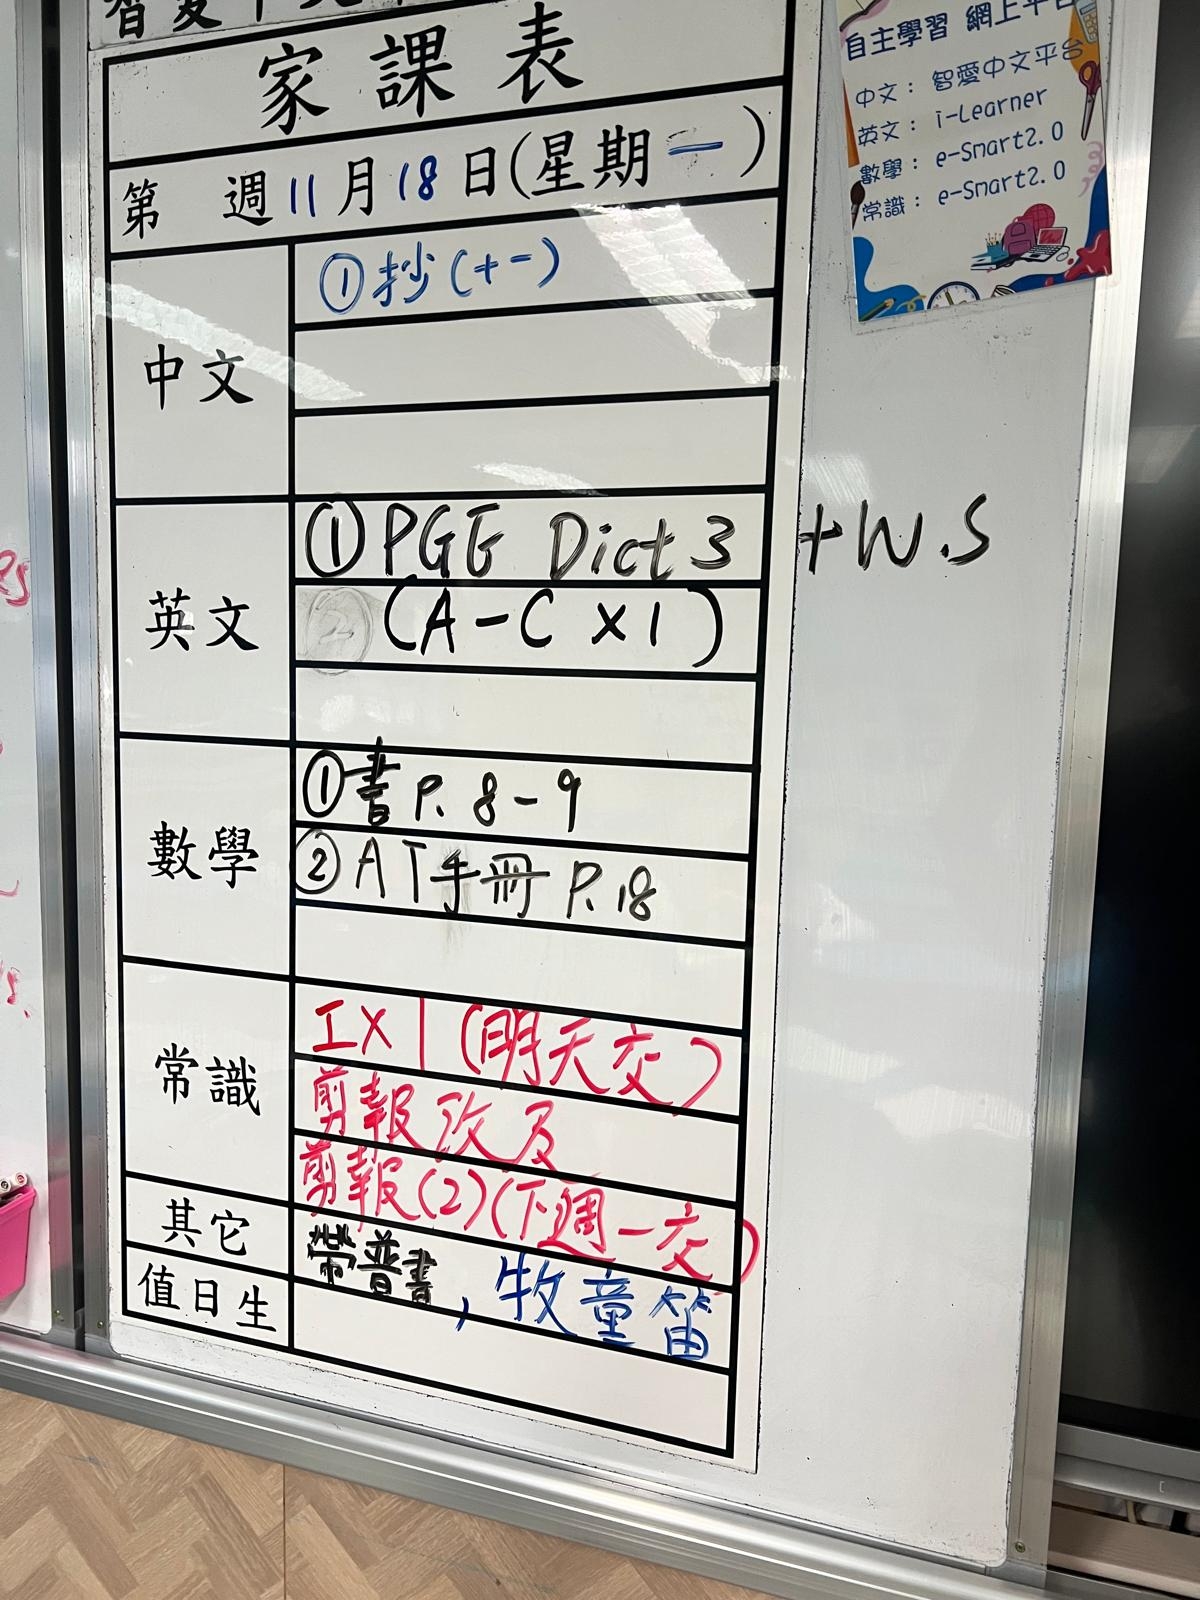 家課表
第 週11月18日(星期一)
中文
①抄(十一)
英文
①PGE Dict 3 + W.S
(A-C X1)
數學
①書P. 8-9
②AT手冊 P.18
常識
工X1(明天交)
剪報改及
剪報(2)(下週一交)
其它
普書, 牧童笛
值日生
自主學習 網上平台
中文: 智愛中文平台
英文: i-Learner
數學: e-Smart2.0
常識: e-Smart2.0